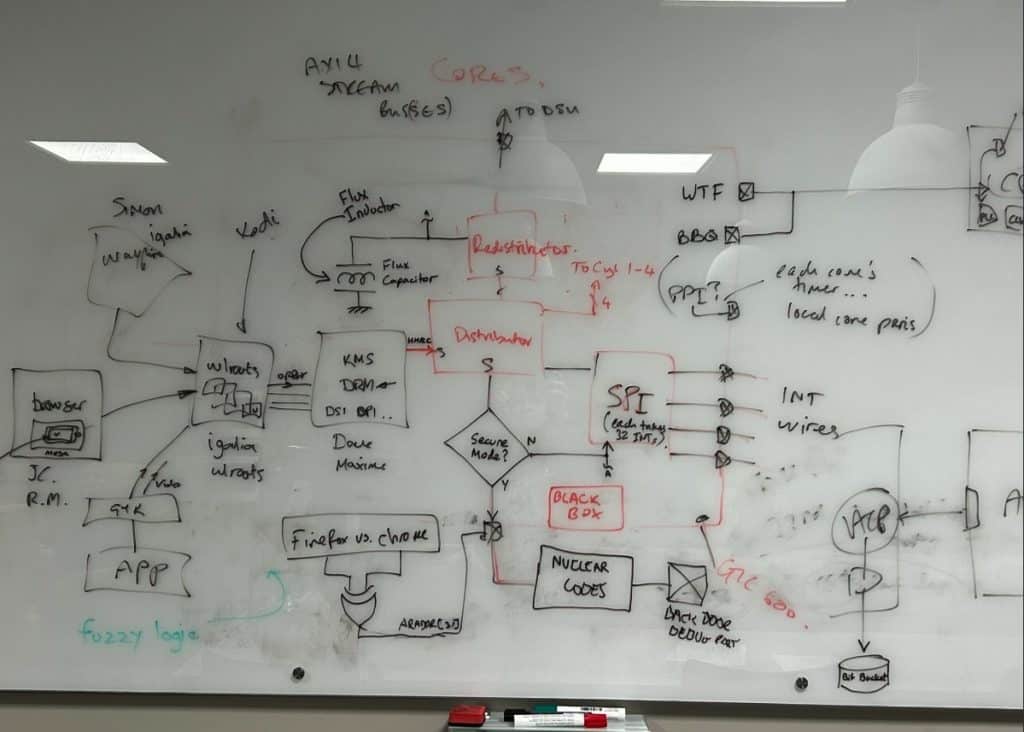 AXI4
STREAM
BUS(SES)
CORES.
TO DSU
Simon
igalia
wayfire
Kodi
Flux
Inductor
Flux
Capacitor
Redistributor.
S
To Cpu 1-4
4
WTF
BBQ
(PPI?
each core's
timer...
local core peris)
browser
MESA
JC.
R.M.
wlroots
igalia
wlroots
KMS
DRM
DSI DPI..
Dave
Maxime
S
Distributor
S
SPI
(each takes
32 INTs)
INT
wires
Secure
Mode?
N
Y
GTK
APP
fuzzy logic
Firefox vs. chrome
BLACK
BOX
NUCLEAR
CODES
BACK DOOR
DEBUG PORT
GIC 600.
ACP
A
Bit Bucket